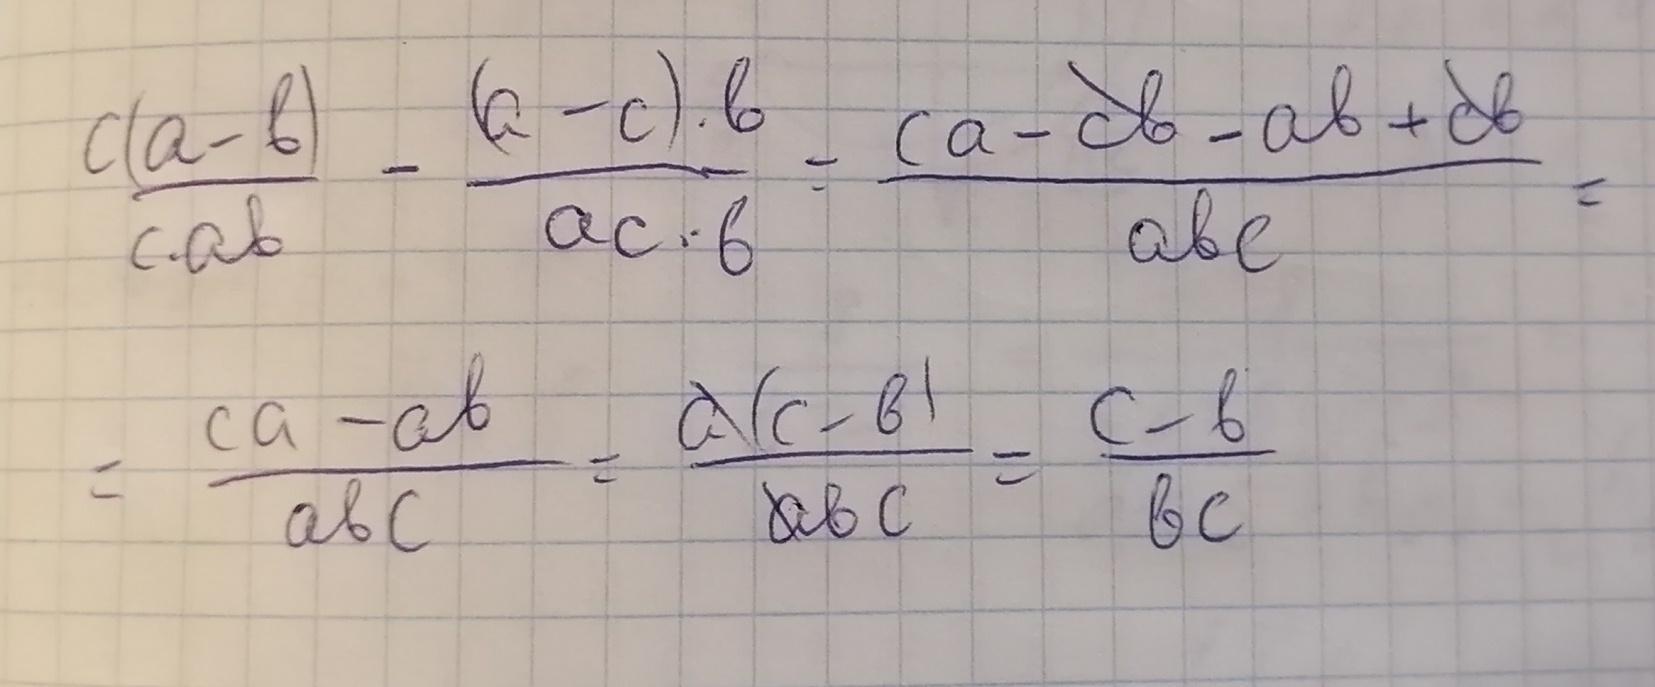 c(a-b)/c·ab - (a-c)·b/ac·b = ca-cb-ab+cb/abc =
= ca-ab/abc = a(c-b)/abc = c-b/bc